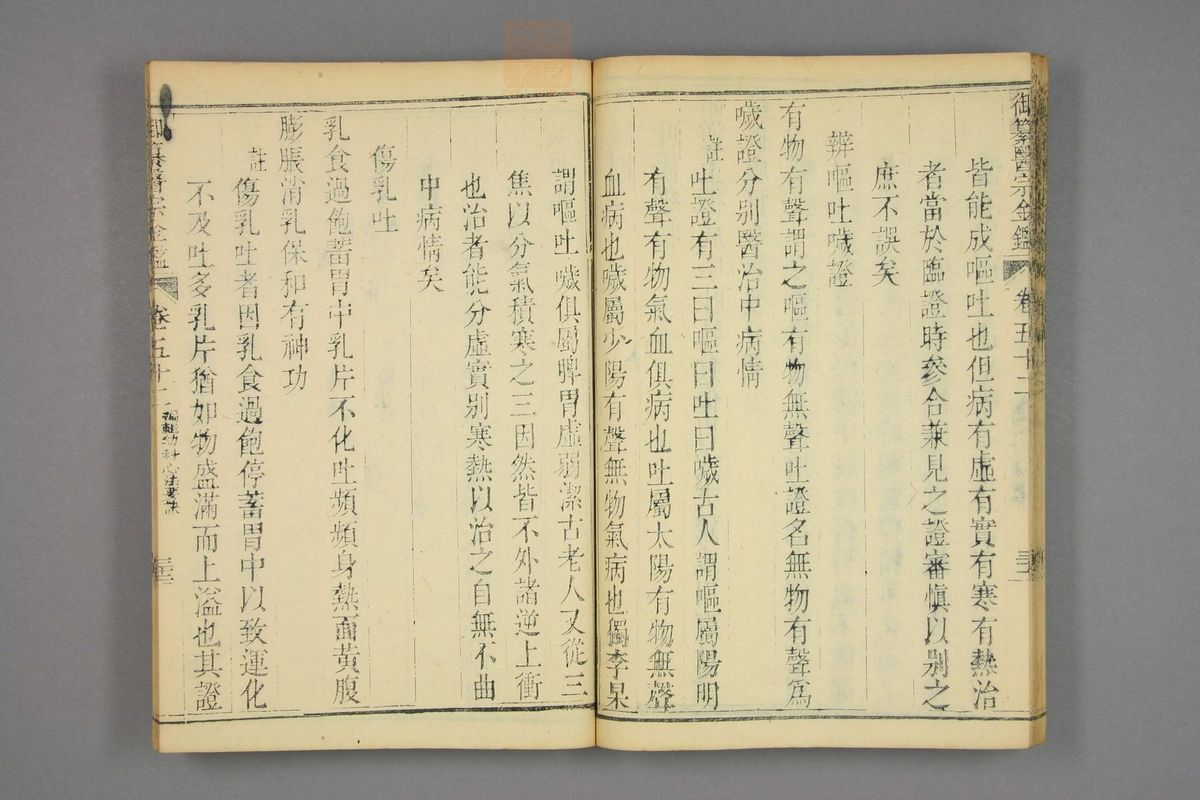 御纂醫宗金鑑 卷五十二
皆能成嘔吐也但病有虛有實有寒有熱治
者當於臨證時參合兼見之證審慎以别之
庶不誤矣
辨嘔吐噦證
有物有聲謂之嘔有物無聲吐證名無物有聲爲
噦證分别醫治中病情
註
吐證有三曰嘔曰吐曰噦古人謂嘔屬陽明
有聲有物氣血俱病也吐屬太陽有物無聲
血病也噦屬少陽有聲無物氣病也獨李杲
謂嘔吐噦俱屬脾胃虛弱潔古老人又從三
焦以分氣積寒之三因然皆不外諸逆上衝
也治者能分虛實别寒熱以治之自無不曲
中病情矣
傷乳吐
乳食過飽蓄胃中乳片不化吐頻頻身熱面黃腹
膨脹消乳保和有神功
註
傷乳吐者因乳食過飽停蓄胃中以致運化
不及吐多乳片猶如物盛滿而上溢也其證
御纂醫宗金鑑 卷五十二 編輯幼科心法要訣